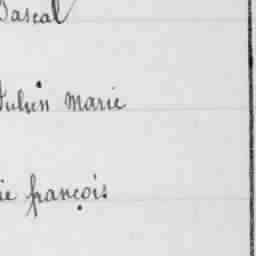 Pascal
Julien Marie
ie françois